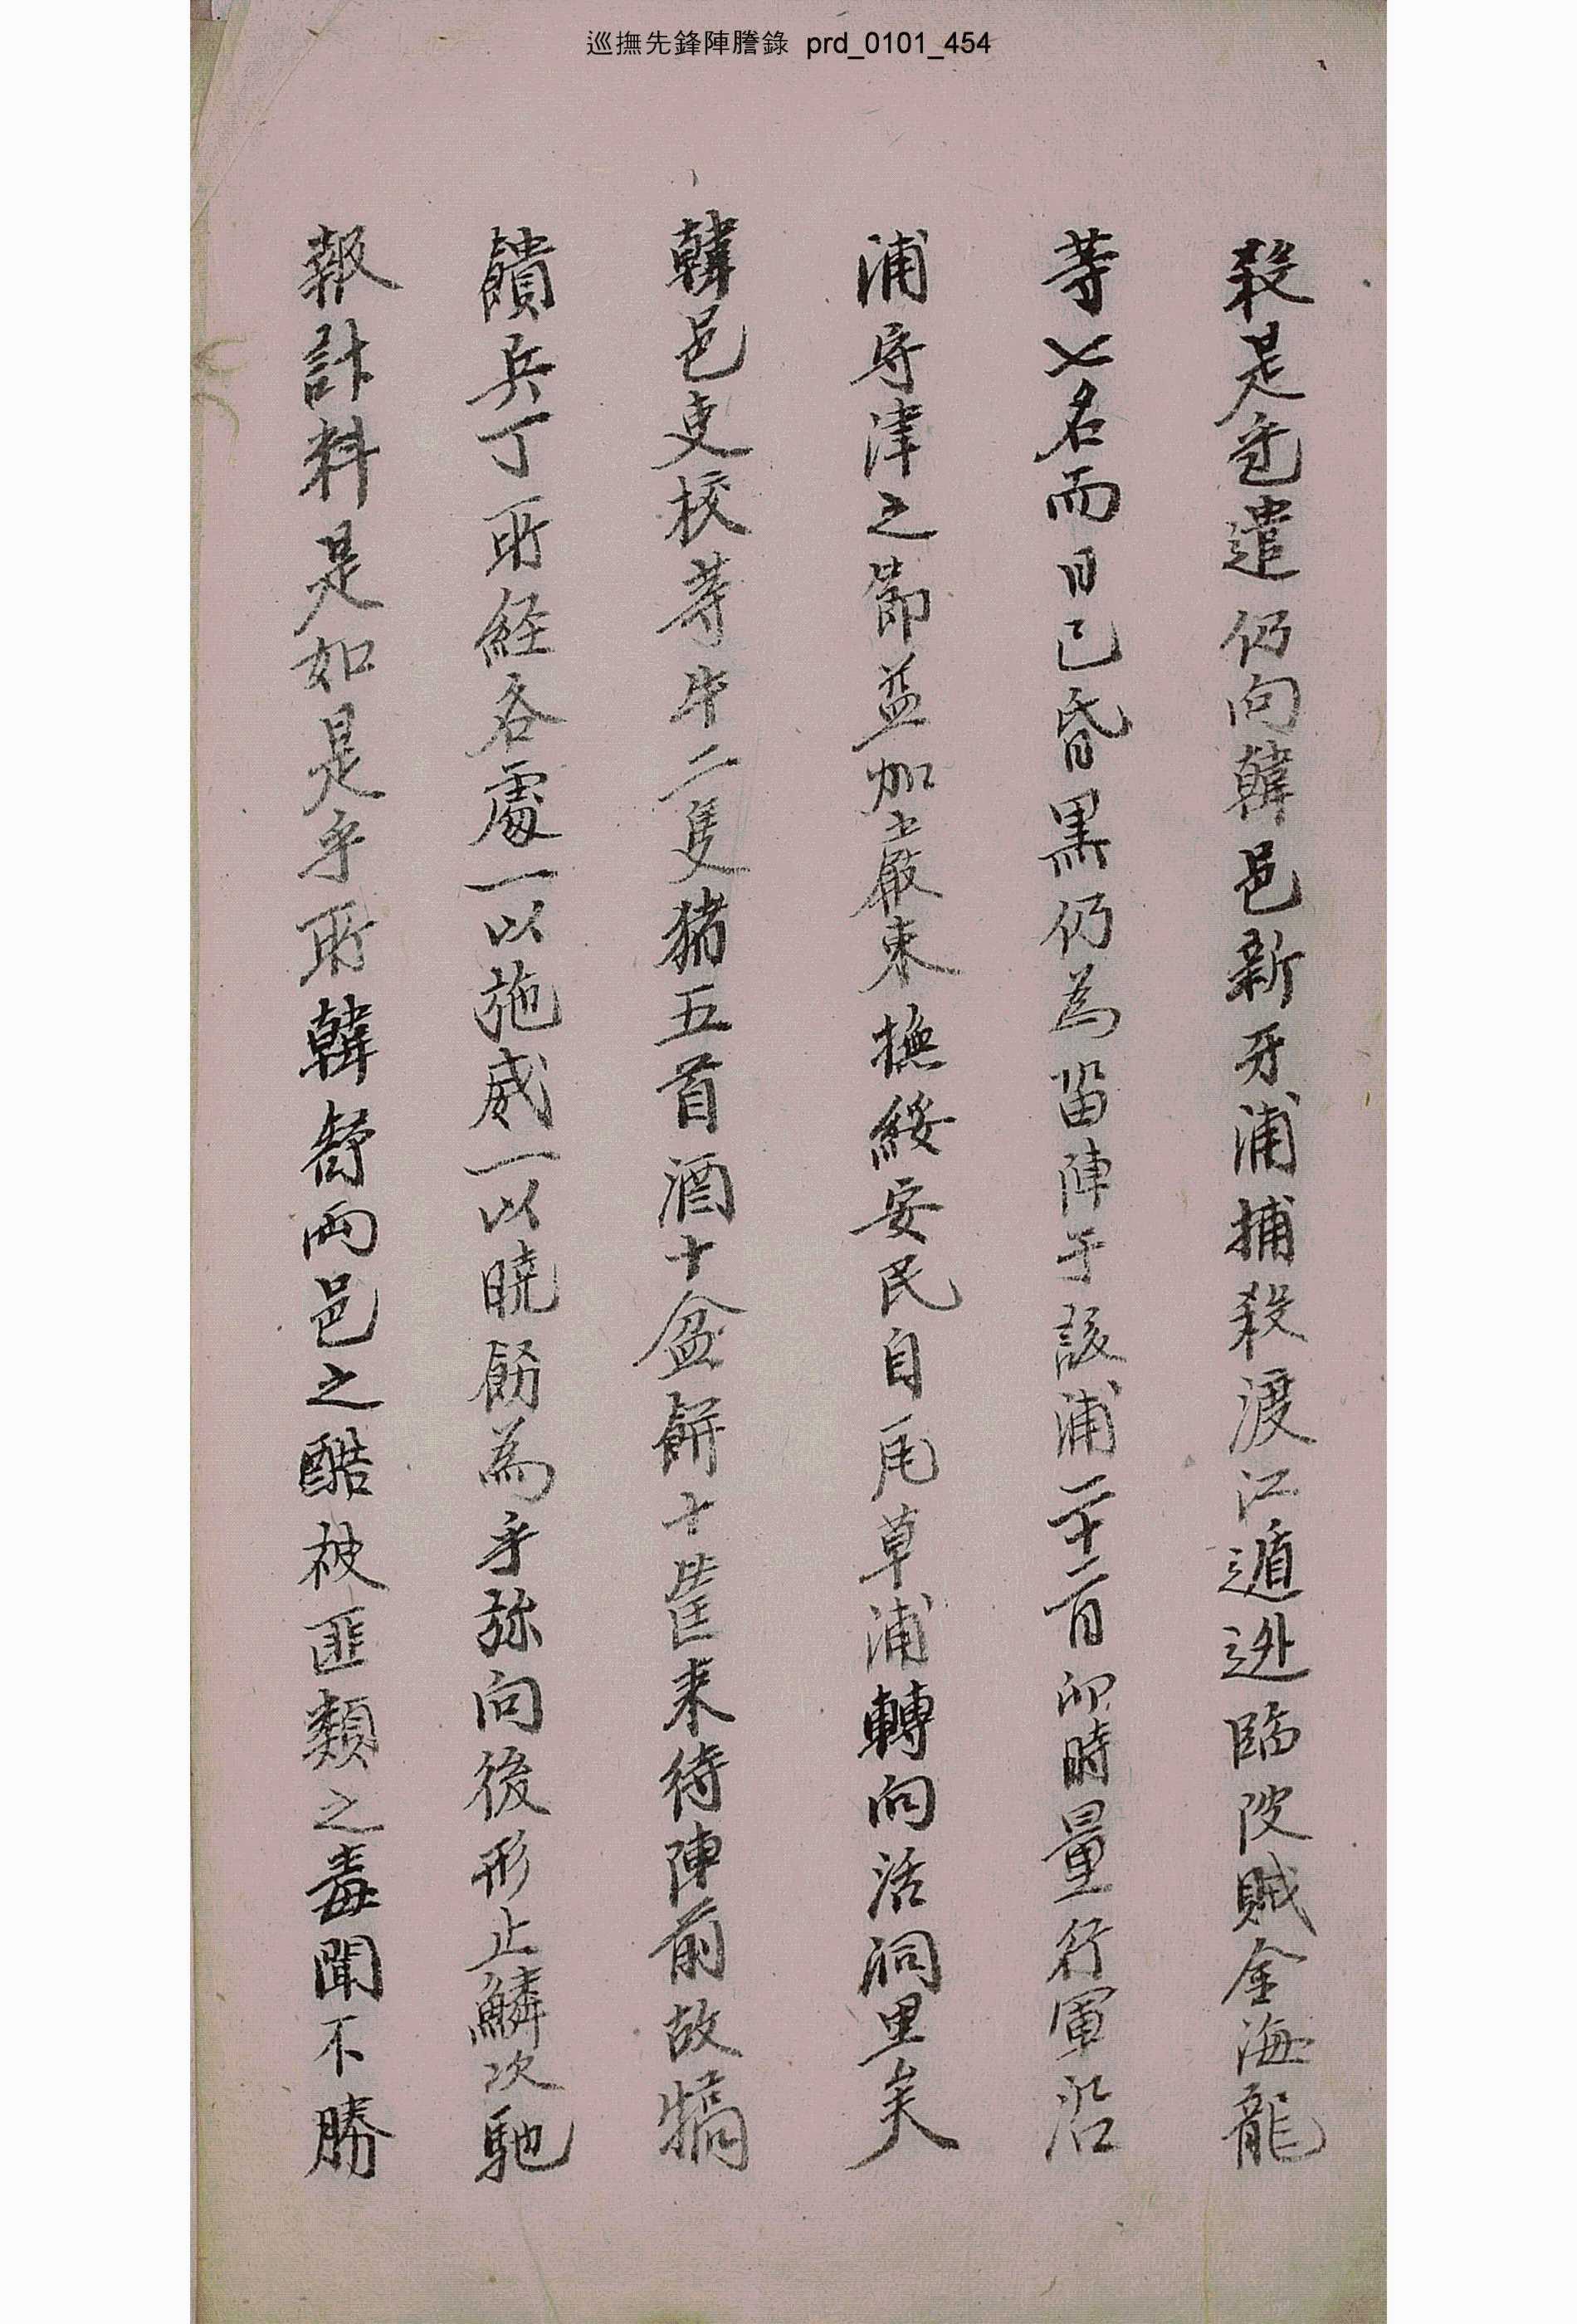 巡撫先鋒陣謄錄 prd_0101_454
殺是乭遣仍向韓邑新牙浦捕殺渡江遁逃臨陂賊金海龍
等七名而日已昏黑仍為留陣于該浦二十二日卯時量行軍沿
浦守津之節益加嚴束撫綏安民自瓦草浦轉向活洞里矣
韓邑吏校等牛二隻猪五首酒十盆餠十筐来待陣前故犒
饋兵丁所経各處一以施威一以曉飭為乎旀向後形止鱗次馳
報計料是如是乎所韓舒両邑之酷被匪類之毒聞不勝